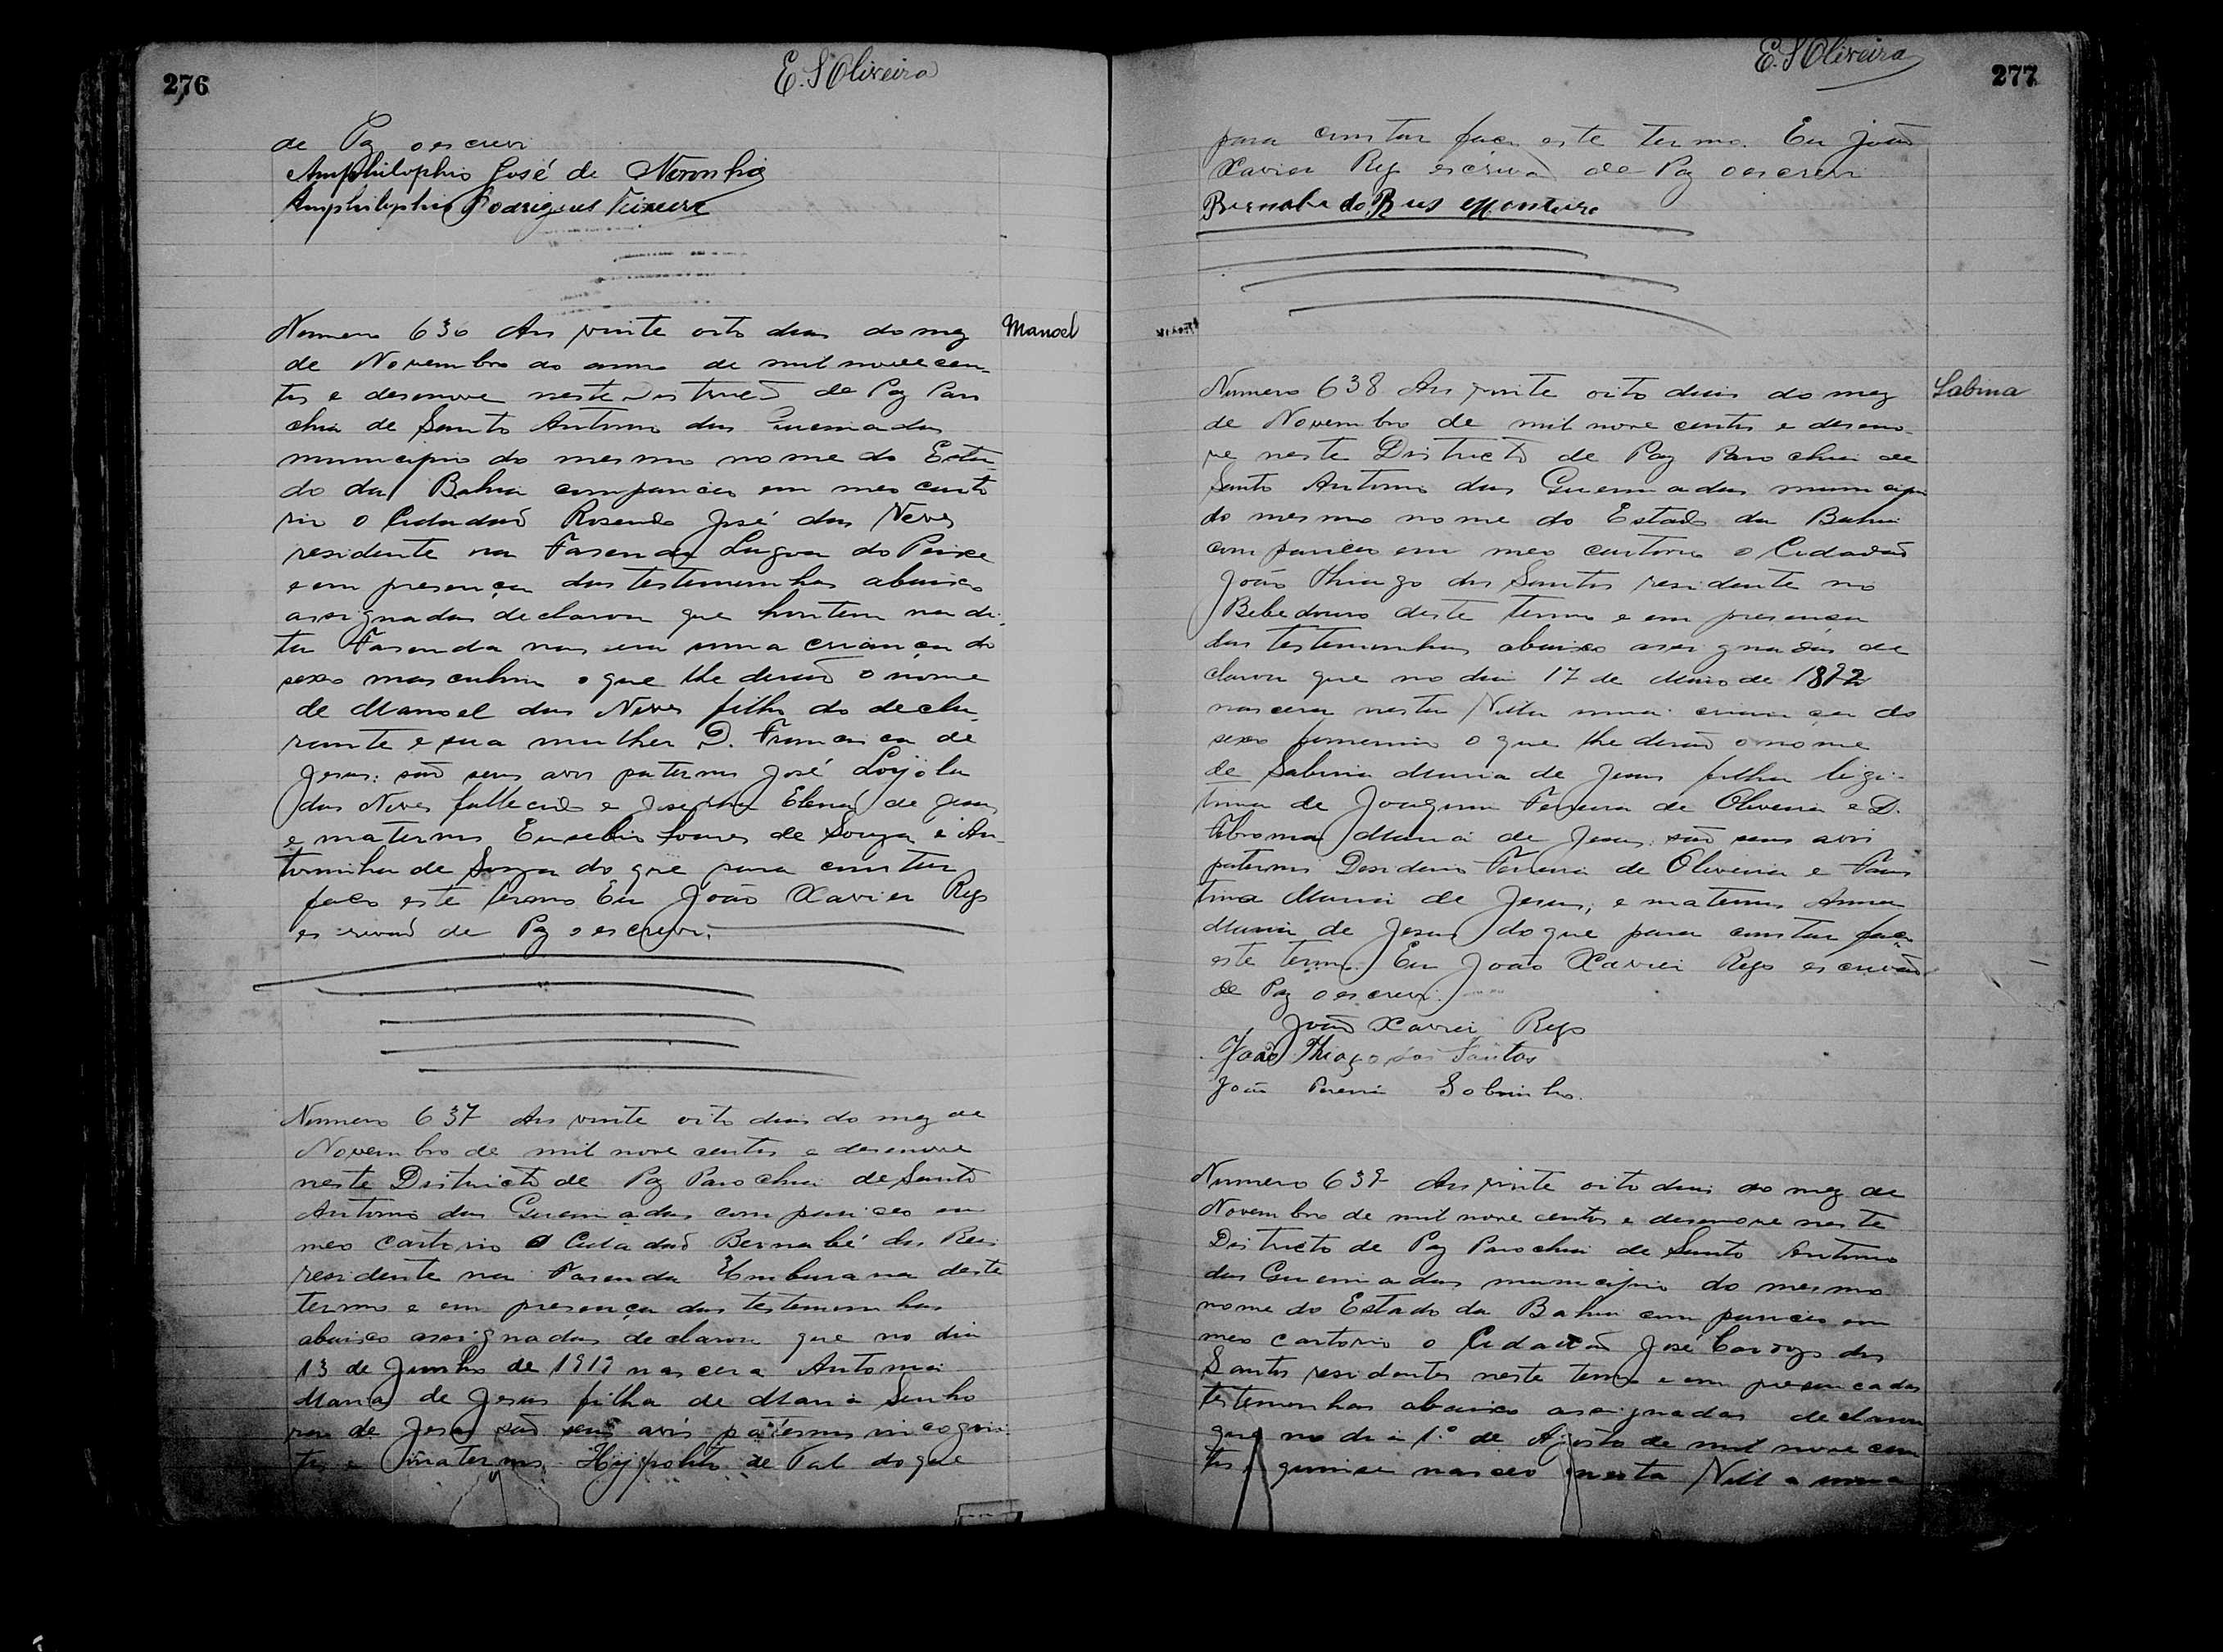 276
E. S Oliveira
de Paz o escrevi
Amphilophio José de Noronha
Amphilophio Rodrigues Teixeira
Manoel
Numero 636 Aos vinte oito dias do mez
de Novembro do anno de mil novecen-
tos e desenove neste Districto de Paz Paro
chia de Santo Antonio das Queimadas
municipio do mesmo nome do Esta-
do da Bahia compareceo em meo carto
rio o Cidadaõ Rosendo José das Neves
residente na Fasenda Lagoa do Peixe
e em presença das testemunhas abaixo
assignadas declarou que hontem na di-
ta Fasenda nascera uma criança do
sexo masculino o que lhe deraõ o nome
de Manoel das Neves filho do decla-
rante e sua mulher D. Francisca de
Jesus: saõ seus avos paternos José Loyola
das Neves fallecido e Josepha Elena de Jesus
e maternos Eusebio Soares de Souza e An-
toninha de Souza do que para constar
faço este termo Eu João Xavier Rego
escrivaõ de Paz o escrevi.
Numero 637 Aos vinte oito dias do mez de
Novembro de mil nove centos e desenove
neste Districto de Paz Parochia de Santo
Antonio das Queimadas compareceo em
meo cartorio o Cidadaõ Bernabé dos Reis
residente na Fasenda Umburana deste
termo e em presença das testemunhas
abaixo assignadas declarou que no dia
13 de Junho de 1919 nascera Antonia
Maria de Jesus filha de Maria Senho
ra de Jesus saõ seus avós paternos incogni-
tos e maternos Hyppolito de Tal do que
E. S Oliveira
277
para constar faço este termo. Eu João
Xavier Rego escrivaõ de Paz o escrevi
Bernabe do Reis Monteiro
Sabina
Numero 638 Aos vinte oito dias do mez
de Novembro de mil nove centos e deseno-
ve neste Districto de Paz Parochia de
Santo Antonio das Queimadas municipio
do mesmo nome do Estado da Bahia
compareceo em meo cartorio o Cidadaõ
João Thiago dos Santos residente no
Bebedouro deste termo e em presença
das testemunhas abaixo assignadas de
clarou que no dia 17 de Maio de 1892
nascera nesta Villa uma criança do
sexo femenino o que lhe deraõ o nome
de Sabina Maria de Jesus filha ligi-
tima de Joaquim Ferreira de Oliveira e D.
Maria de Jesus: saõ seus avós
paternos Desiderio Ferreira de Oliveira e Faus
tina Maria de Jesus, e maternos Anna
Maria de Jesus do que para constar faço
este termo. Eu João Xavier Rego escrivaõ
de Paz o escrevi.
João Xavier Rego
João Thiago dos Santos
João Pereira Sobrinho.
Numero 639 Aos vinte oito dias do mez de
Novembro de mil nove centos e desenove neste
Districto de Paz Parochia de Santo Antonio
das Queimadas municipio do mesmo
nome do Estado da Bahia compareceo em
meo cartorio o Cidadaõ José dos
Santos residentes neste termo e em presença das
testemunhas abaixo assignadas declarou
que no dia 1.º de Agosto de mil nove cen
tos e quinse nasceo nesta Villa uma